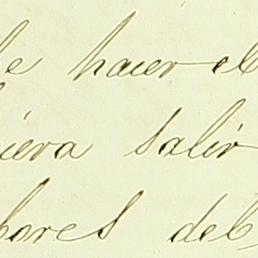 de hacer el
iera salir
bores del